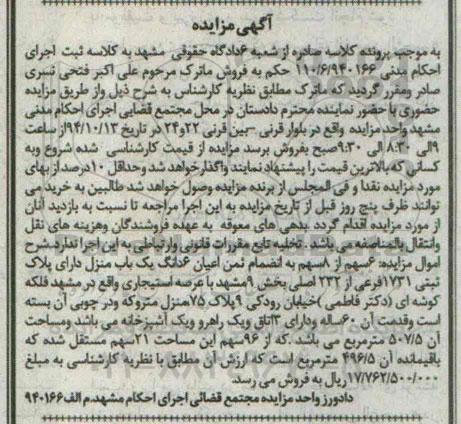 آگهی مزایده
به موجب پرونده کلاسه صادره از شعبه ۶دادگاه حقوقی مشهد به کلاسه ثبت اجرای
احکام مدنی ۱۱۰/۶/۹۴۰۱۶۶ حکم به فروش ماترک مرحوم علی اکبر فتحی نسری
صادر ومقرر گردید که ماترک مطابق نظریه کارشناس به شرح ذیل واز طریق مزایده
حضوری با حضور نماینده محترم دادستان در محل مجتمع قضایی اجرای احکام مدنی
مشهد واحد مزایده واقع در بلوار قرنی -بین قرنی ۲۲و۲۴ در تاریخ ۹۴/۱۰/۱۳از ساعت
۹الی ۸:۳۰ الی ۹:۳۰صبح بفروش برسد مزایده از قیمت کارشناسی شده شروع وبه
کسانی که بالاترین قیمت را پیشنهاد نمایند واگذار خواهد شد وحداقل ۱۰درصد از بهای
مورد مزایده نقدا و فی المجلس از برنده مزایده وصول خواهد شد طالبین به خرید می
توانند ظرف پنج روز قبل از تاریخ مزایده به این اجرا مراجعه تا نسبت به بازدید آنان
از مورد مزایده اقدام گردد بدهی های معوقه به عهده فروشندگان وهزینه های نقل
وانتقال بالمناصفه می باشد . تخلیه تابع مقررات قانونی وارتباطی به این اجرا ندارد شرح
اموال مزایده: ۶سهم از ۸سهم به انضمام ثمن اعیان ۶دانگ یک باب منزل دارای پلاک
ثبتی ۱۷۳۱فرعی از ۲۳۲ اصلی بخش ۹مشهد با عرصه استیجاری واقع در مشهد فلکه
کوشه ای (دکتر فاطمی)خیابان رودکی ۹پلاک ۷۵منزل متروکه ودر چوبی آن بسته
است وقدمت آن ۶۰ساله ودارای ۳اتاق ویک راهرو ویک آشپزخانه می باشد ومساحت
آن ۵۰۷/۵ مترمربع می باشد .که از ۹۶سهم این مساحت ۲۱سهم مستقل شده که
باقیمانده آن ۴۹۶/۵ مترمربع است که ارزش آن مطابق با نظریه کارشناسی به مبلغ
۱۷/۷۶۲/۵۰۰/۰۰۰ریال به فروش می رسد.
دادورز واحد مزایده مجتمع قضائی اجرای احکام مشهد.م الف۹۴۰۱۶۶